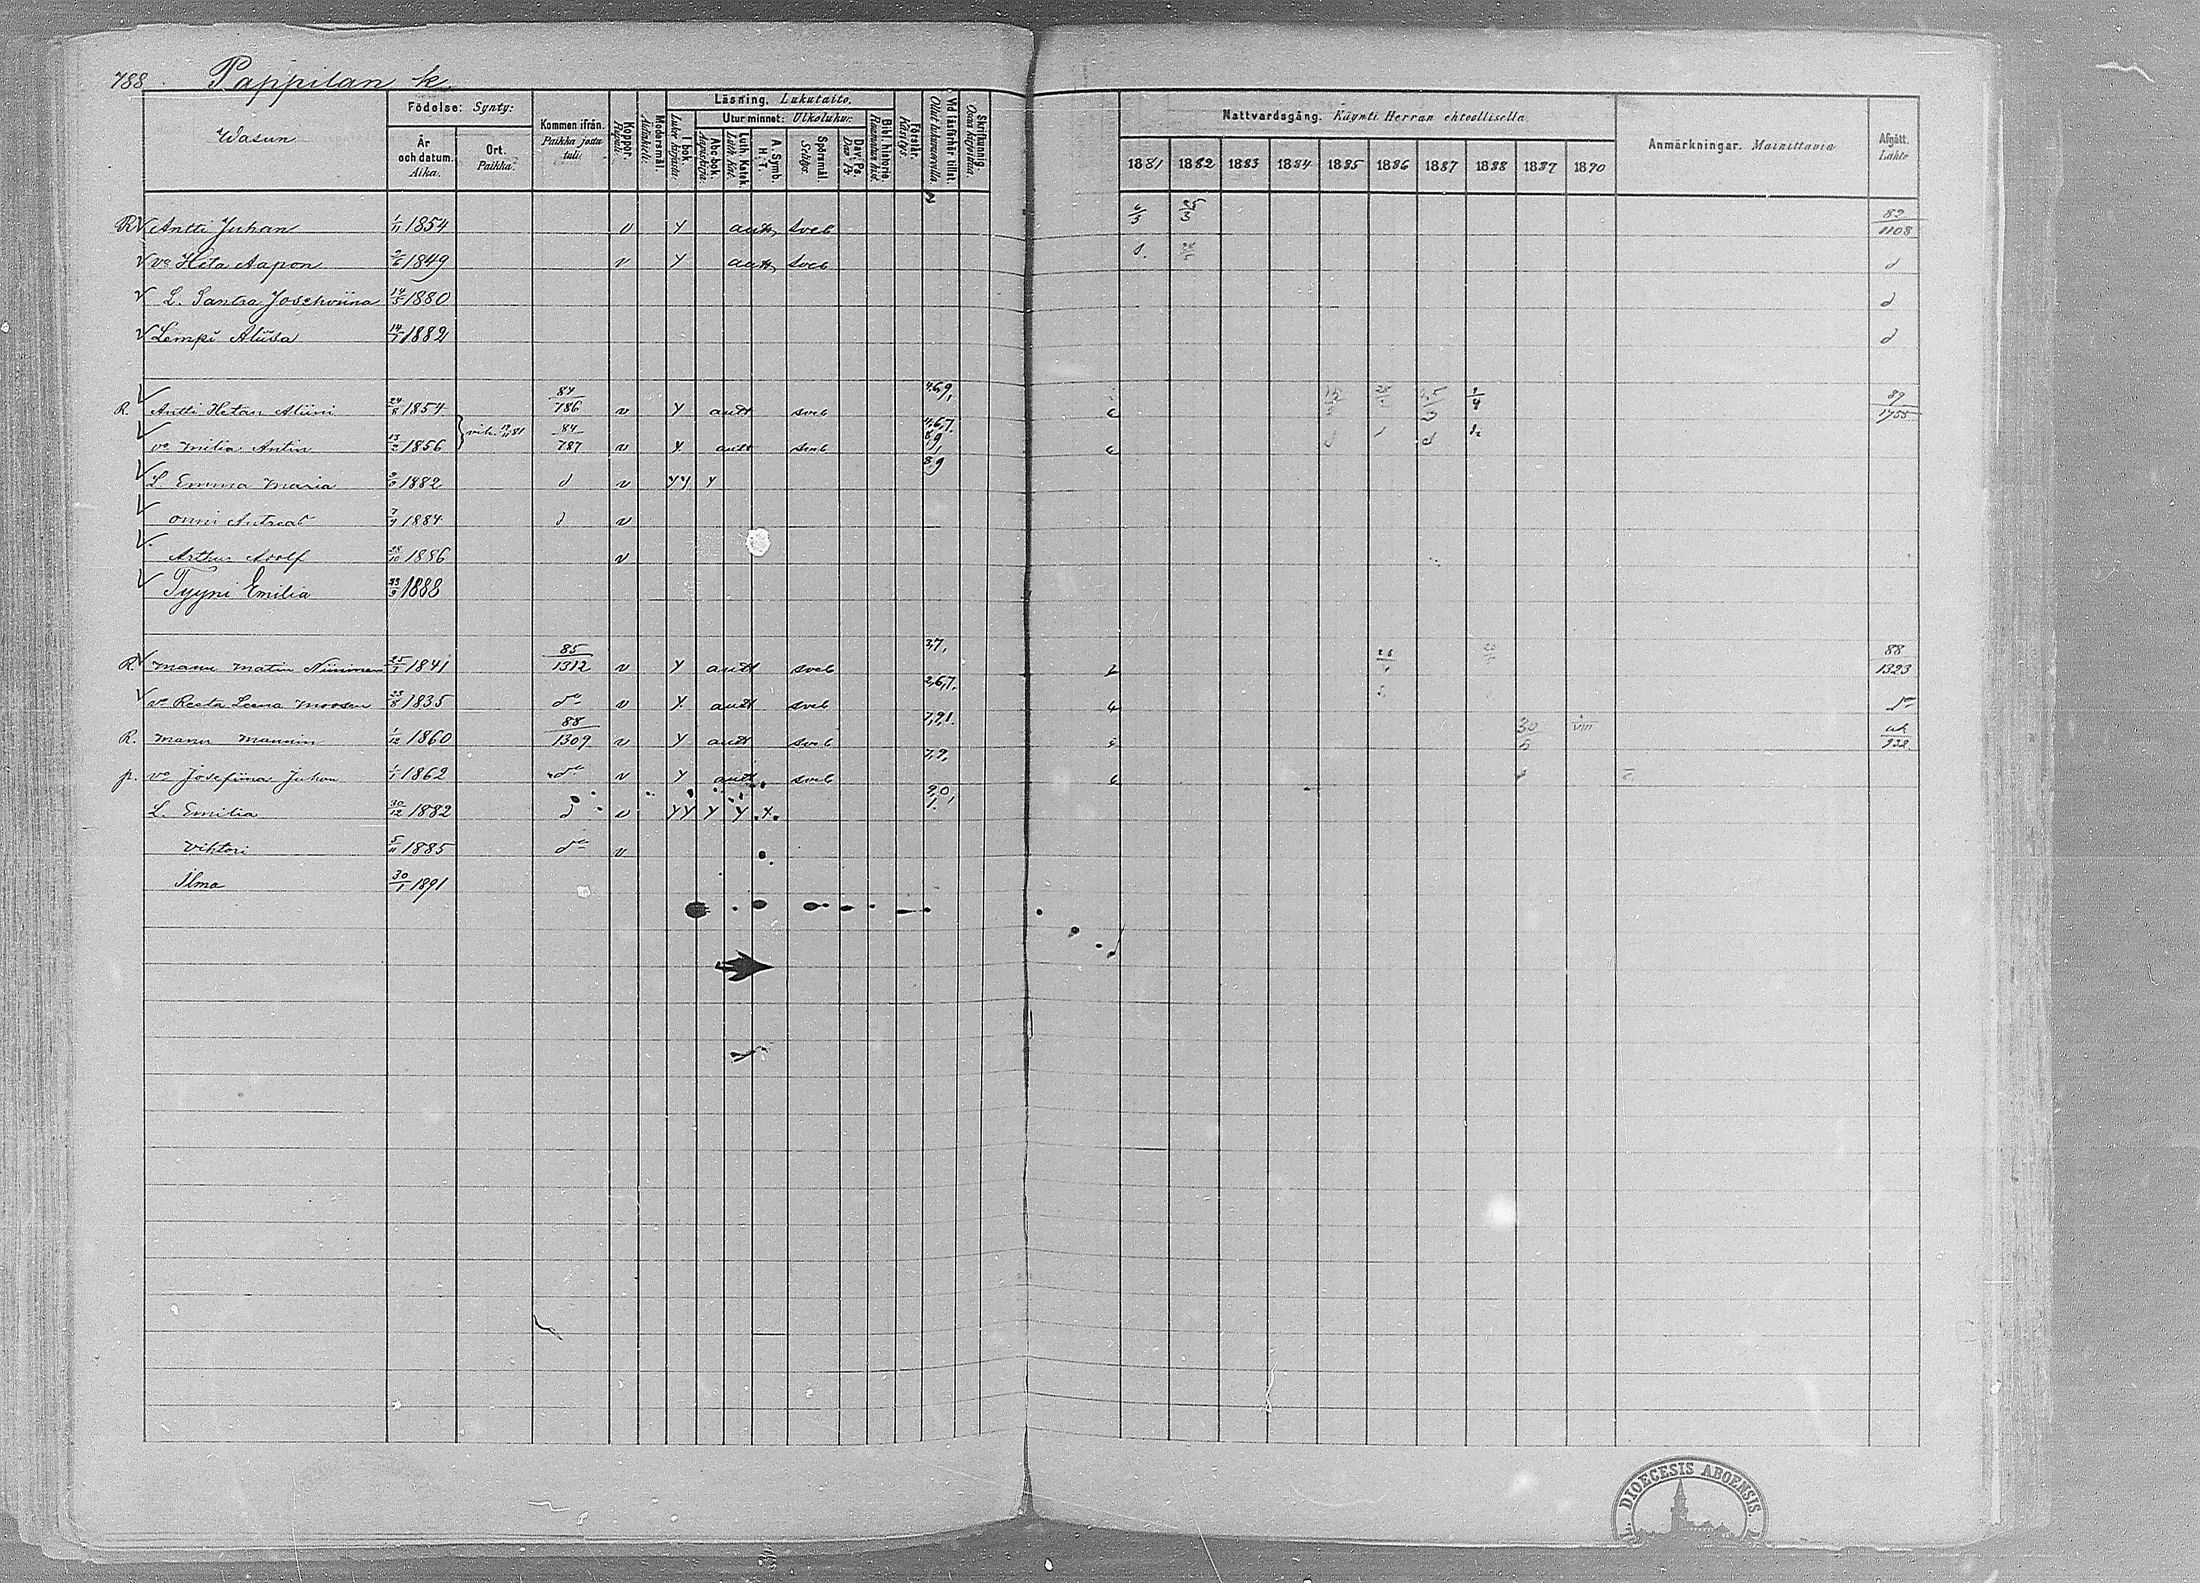 788. Pappilan k.
Wasun
Födelse: Synty:
År och datum. Aika.
Ort. Paikka.
Kommen ifrån. Paikka josta tuli.
Koppor. Rupuli.
Modersmål. Äidinkieli.
Läsning. Lukutaito.
I bok. Luku kirjasta.
Utur minnet: Ulkoluku:
Abc-bok. Aapiskirja.
Luth. Katek. Luth. Kat.
A. Symb. H. T.
Spörsmål. Selitys.
Dav. Ps. Dav. Ps.
Bibl. historie. Raamatun hist.
Förstår. Käsitys.
Vid läsförhör tillst. Ollut lukuvuorolla.
Skrifkunnig. Osaa kirjoittaa.
Nattvardsgång. Käynti Herran ehtoollisella
1881 1882 1883 1884 1885 1886 1887 1888 1889 1890
Anmärkningar. Mainittavia
Afgått. Lähtö
R V Antti Juhan 1/11 1854 v y autt, sveb 6/3 25/3 82/1108
V vo Heta Aapon 2/6 1849 v y autt, sveb d. d
V L. Santra Josehviina 14/5 1880 d
V Lempi Aliisa 14/7 1882 d
R. V Antti Hetan Aliini 24/8 1854 84/786 v y autt sveb 4,6,9/1 1/4 89/1755
V vo Milia Antin 13/2 1856 vih. 84/787 v y. autt sveb 4,6,7. 8,9/1
V L Emma Maria 1882 d v yy y 8,9
V Onni Antreas 7/9 1884 d v
V Arthur Adolf 28/10 1886 v
V Tyyni Emilia 23/9 1888
R. V Manu Matin Niiminen 25/7 1841 85/1312 v y autt sveb 3,7, 88/1323
V vo Reeta Leena Moosen 23/8 1835 do v y. autt sveb 2,6,7. do
R. Manu Mannin 1/12 1860 88/1309 v y autt sveb 7,9,1. 30/6 1/VIII uk/932
p. vo Josefiina Juhan 1/1 1862 do v y autt. sveb 7,9,
L. Emilia 30/12 1882 d v yy y y y. 9,0, 1.
Vihtori 5/11 1885 do v
Ilma 30/1 1891
DIOECESIS ABOENSIS